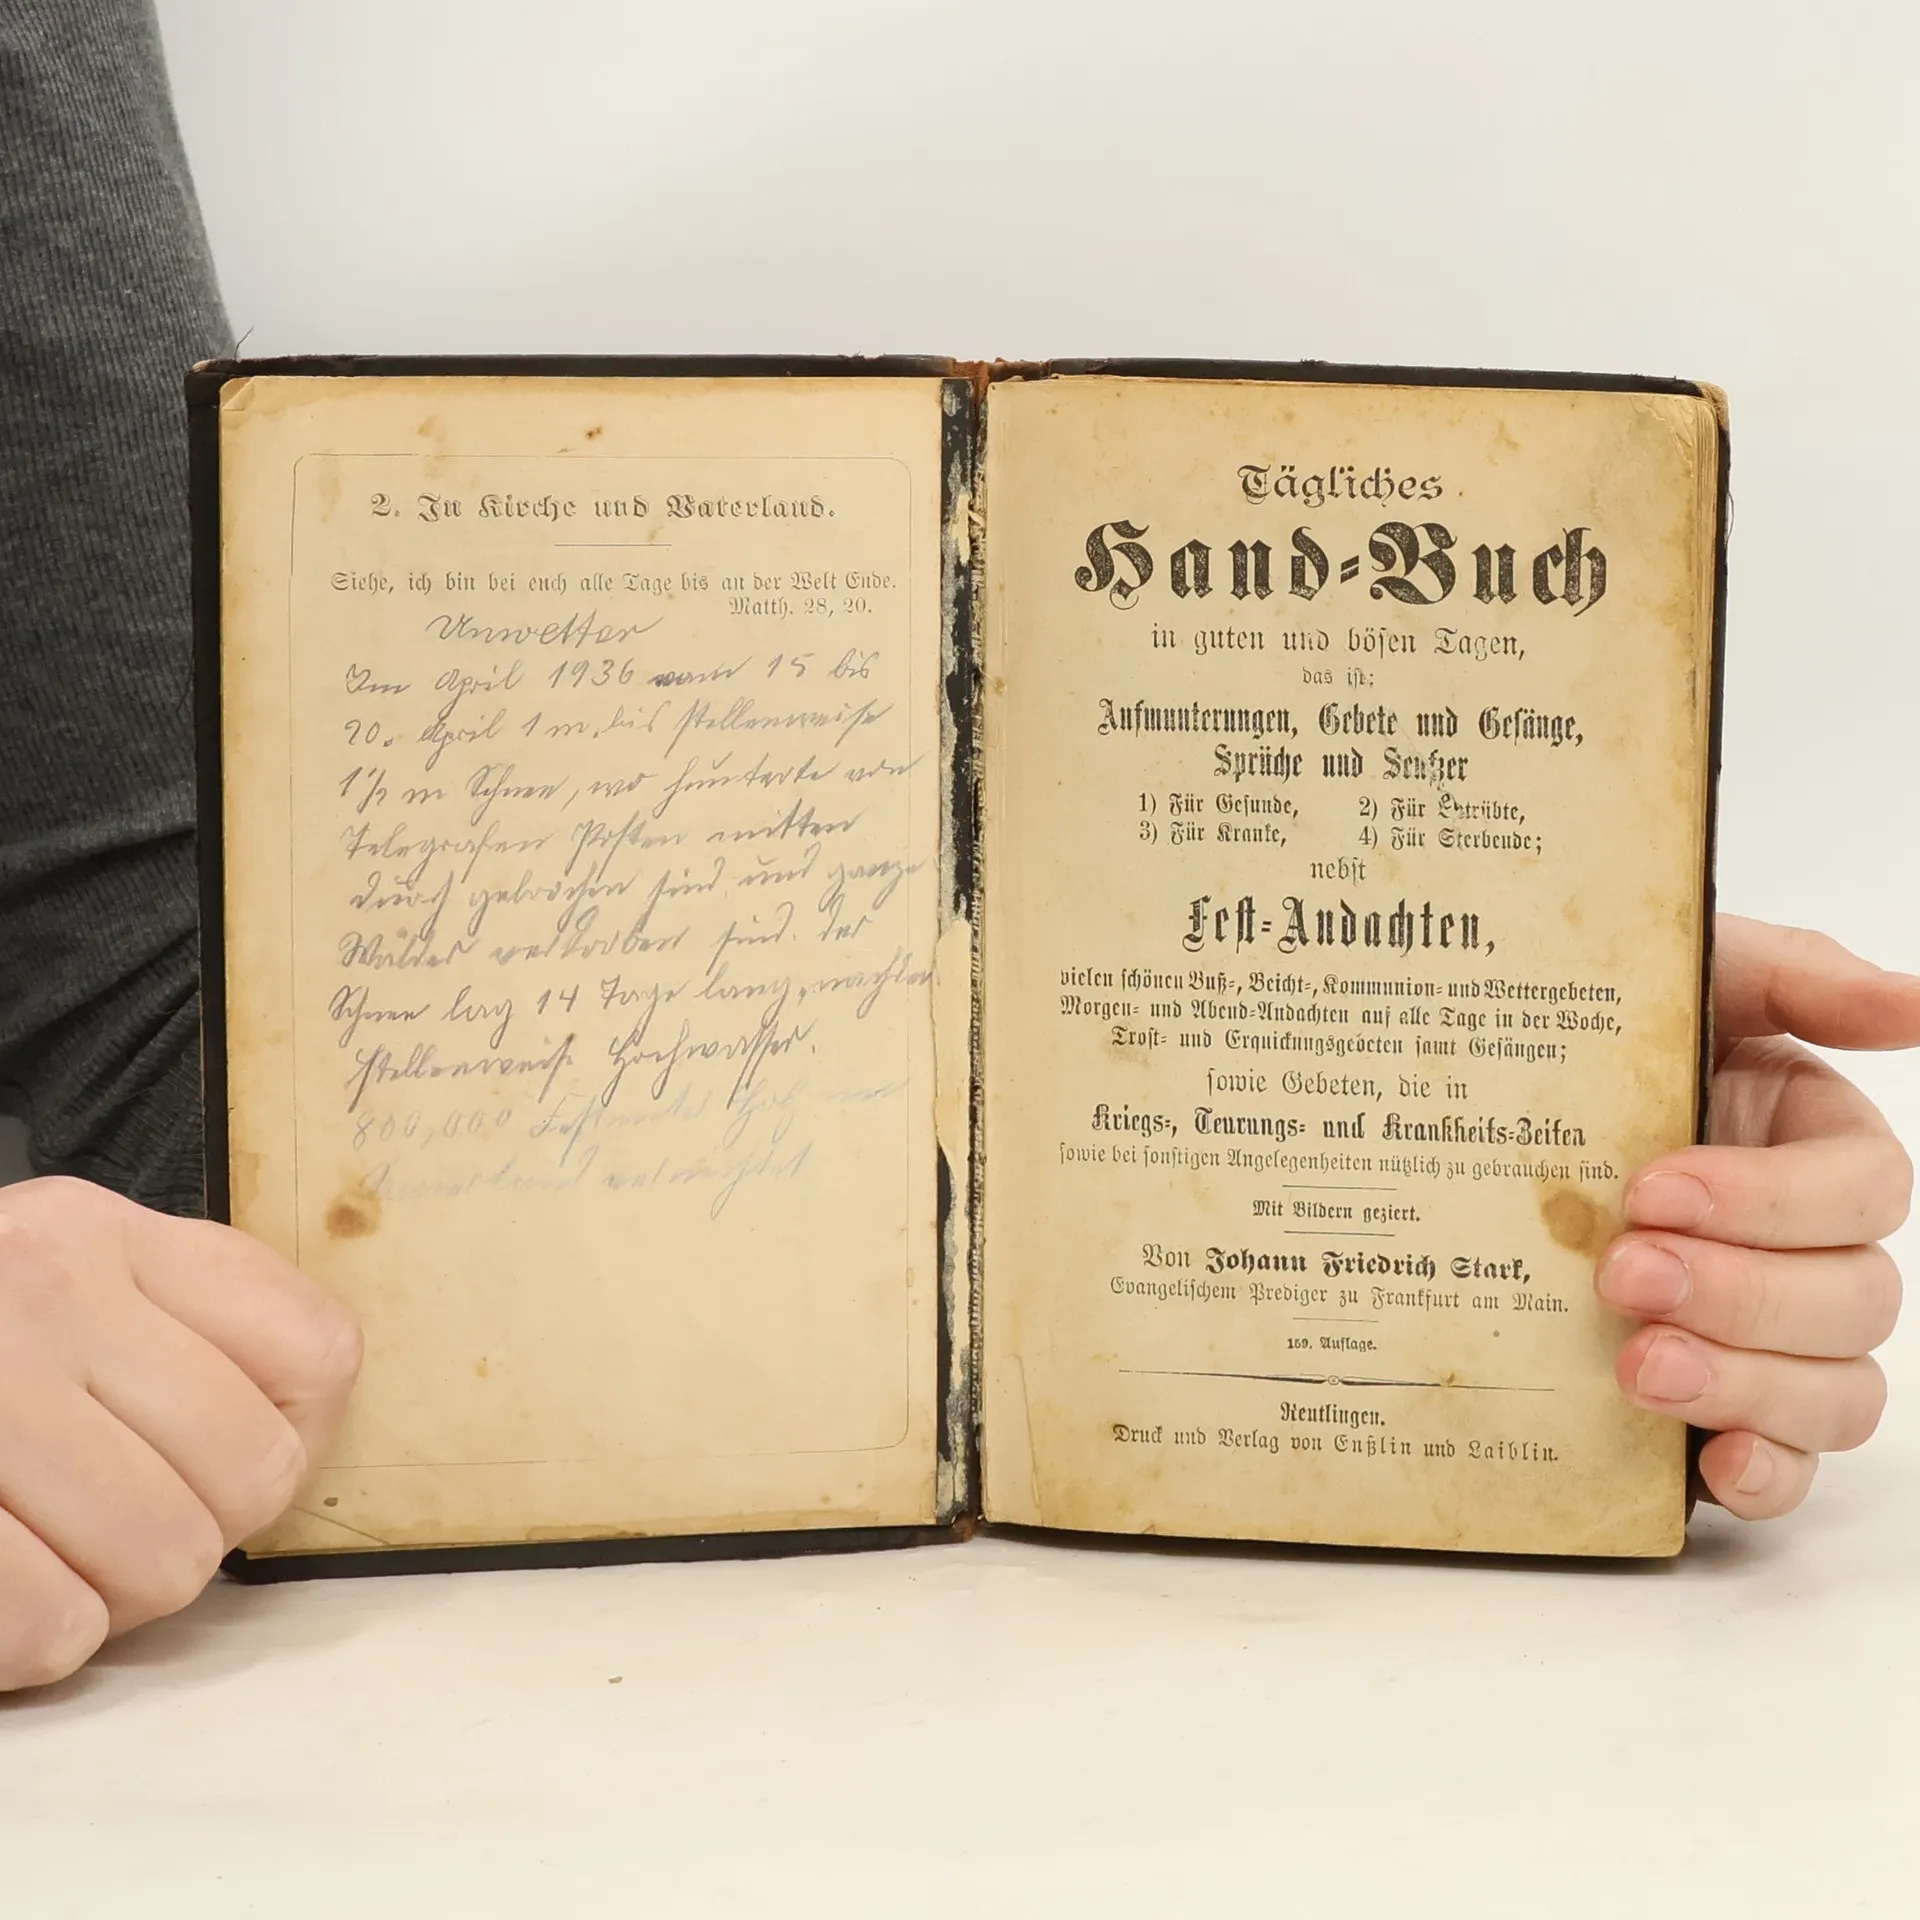 2. In Kirche und Vaterland.
Siehe, ich bin bei euch alle Tage bis an der Welt Ende.
Matth. 28, 20.
Unwetter
Im April 1936 vom 15 bis
20. April 1 m, bis stellenweise
1½ m Schnee, wo hunterte von
Telegrafen Posten mitten
durch gebrochen sind, und ganze
Wälder verdorben sind. der
Schnee lag 14 Tage lang, nachdem
stellenweise Hochwasser.
800,000 Festmeter Holz
vernichtet
Tägliches
Hand-Buch
in guten und bösen Tagen,
das ist:
Aufmunterungen, Gebete und Gesänge,
Sprüche und Seufzer
1) Für Gesunde, 2) Für Betrübte,
3) Für Kranke, 4) Für Sterbende;
nebst
Fest-Andachten,
vielen schönen Buß-, Beicht-, Kommunion- und Wettergebeten,
Morgen- und Abend-Andachten auf alle Tage in der Woche,
Trost- und Erquickungsgebeten samt Gesängen;
sowie Gebeten, die in
Kriegs-, Teurungs- und Krankheits-Zeiten
sowie bei sonstigen Angelegenheiten nützlich zu gebrauchen sind.
Mit Bildern geziert.
Von Johann Friedrich Stark,
Evangelischem Prediger zu Frankfurt am Main.
159. Auflage.
Reutlingen.
Druck und Verlag von Enßlin und Laiblin.